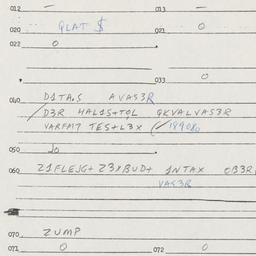 012 — 013 —
020 QLAT $ 021 0
022 0
033 0
040 D1TA.S AVAS3R
D3R HAL1S+TQL QKVALVAS3R
VARFM7 TES+L3X (1890%
050 Jo
060 Z1FLEJG+ Z3YBUD+ 1NTAX OB3R
VAS3R
070 ZUMP
071 0 072 0